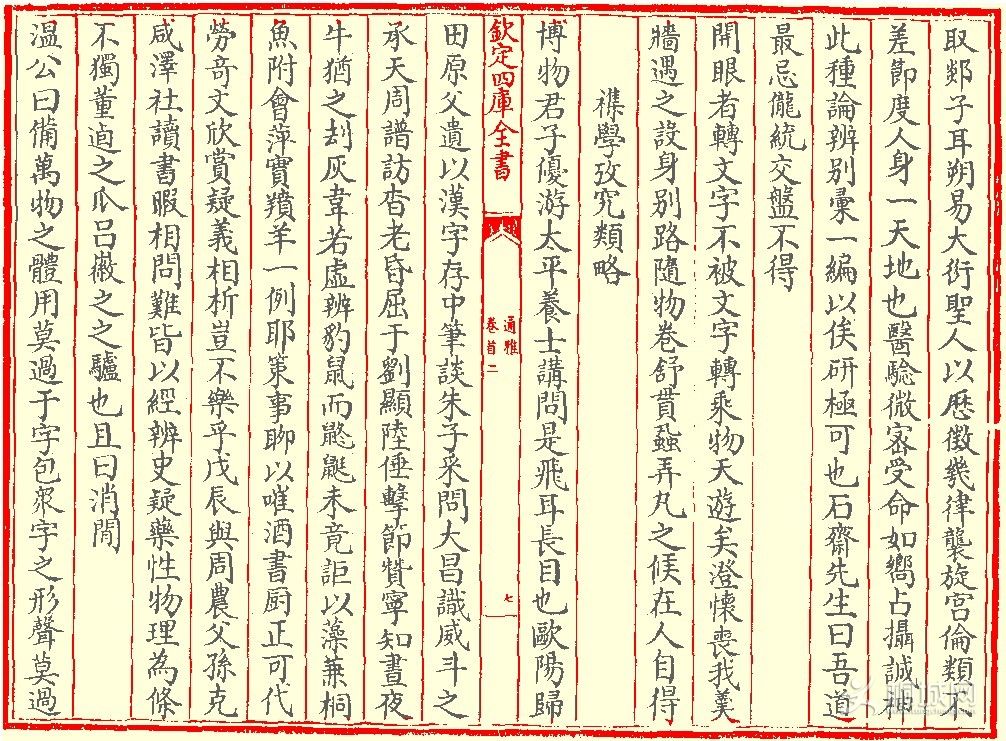 取郯子耳朔易大衍聖人以厯徵幾律襲旋宫倫類不
差節度人身一天地也醫驗微宻受命如嚮占攝誠神
此種論辨别彚一編以俟研極可也石齋先生曰吾道
最忌儱統交盤不得
開眼者轉文字不被文字轉乘物天遊矣澄懷喪我羮
牆遇之設身别路隨物巻舒貫蝨弄丸之候在人自得
襍學攷究類略
博物君子優游太平養士講問是飛耳長目也歐陽歸
欽定四庫全書
通雅
卷首二
七
田原父遺以漢字存中筆談朱子采問大昌識威斗之
承天周譜訪杳老昏屈于劉顯陸倕擊節贊寧知晝夜
牛猶之刦灰韋若虚辨豹鼠而鼮鼮未竟詎以藻蒹桐
魚附會萍實羵羊一例耶策事聊以唯酒書厨正可代
勞奇文欣賞疑義相析豈不樂乎戊辰與周農父孫克
咸澤社讀書暇相問難皆以經辨史疑藥性物理為條
不獨董逌之爪吕徽之之驢也且曰消閒
温公曰備萬物之體用莫過于字包衆字之形聲莫過